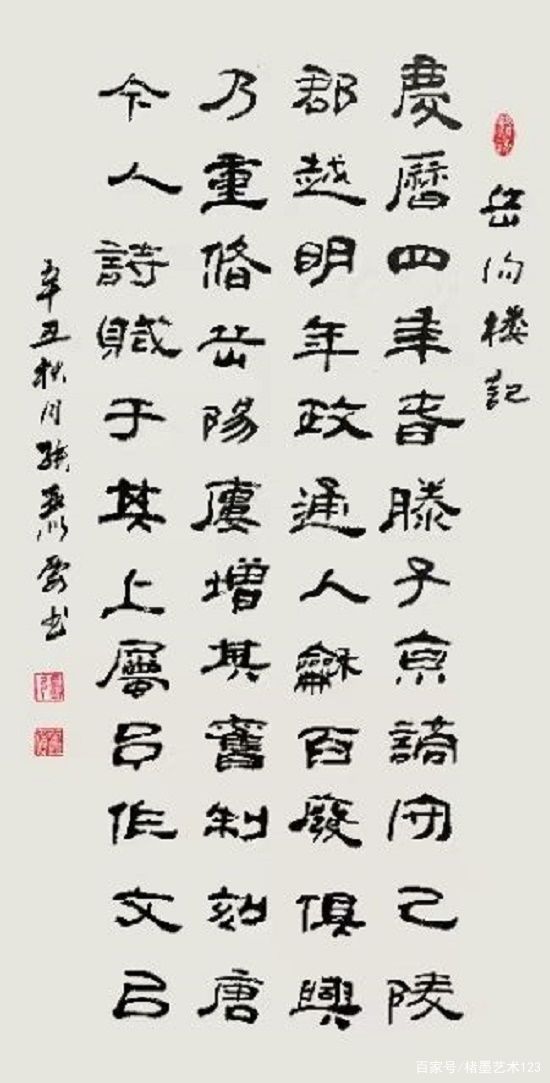 岳阳楼記
慶曆四年春滕子京謫守巴陵
郡越明年政通人龢百廢俱興
乃重脩岳陽廔增其舊制刻唐
今人詩賦于其上屬予作文以
辛丑秋月书
百家号/楮墨艺术123